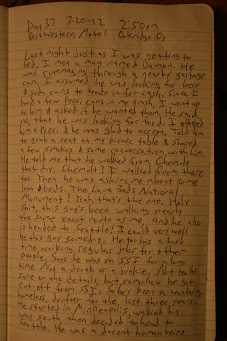 Day 37 7-20-12 2:50pm
Best Western Motel Oakridge Or
Last night just as I was getting to
bed, I met a man named Damon. He
was rummaging through a nearby garbage
can. I assumed he was looking for beer
& soda cans to trade in for cash. Since I
had a few Pepsi cans in my trash, I went up to
him & asked if he wanted them. He said
no, that he was looking for food. I offered
him a Pepsi & he was glad to accept. Told him
to grab a seat at my picnic table & shared
a few smokes & some conversation with him.
He told me that he walked from Chemult
that day. Chemult! I walked from there
too. Then he was asking me about some
lava beds. The Lava Beds National
Monument? Yeah, that's the one. Holy
shit, this guy's been walking nearly
the same exact route as me, and he also
is headed to Seattle! I could very well
be this guy someday. He too has a hard
time working regular jobs for other
people. Says he was on SSI for a long
time. Not a drunk or a junkie. Not really
sure on the details, but somehow he got
cut off from SSI & he's been a wandering
homeless drifter for the last three years.
He started in Minneapolis, walked his
way south then decided to head to
Seattle. He was a decent human being